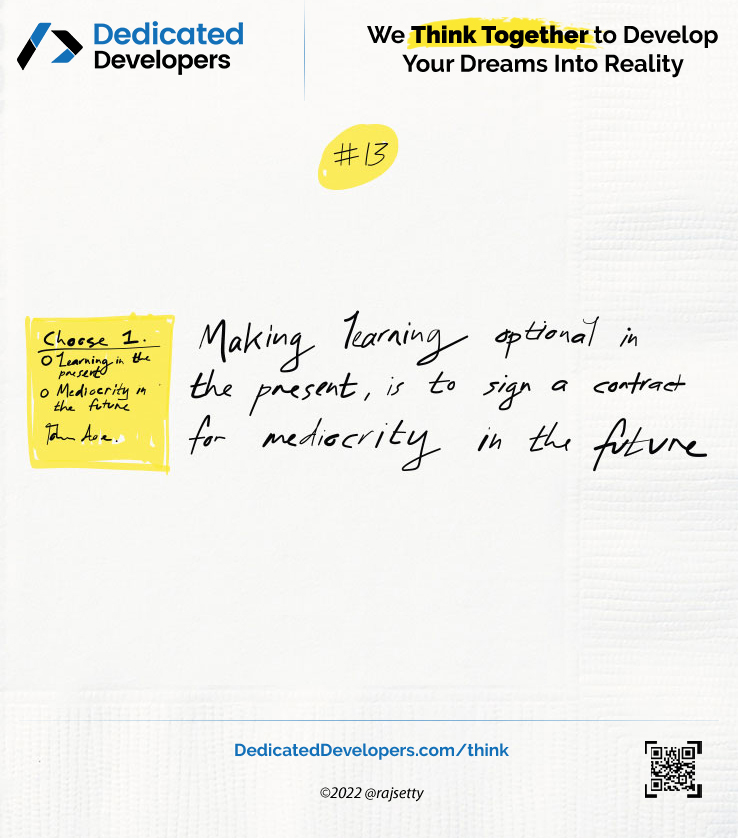 Dedicated
Developers
We Think Together to Develop
Your Dreams Into Reality
#13
Choose 1.
Learning in the
present
Mediocrity in
the future
John
Making learning optional in
the present, is to sign a contract
for mediocrity in the future
DedicatedDevelopers.com/think
©2022 @rajsetty